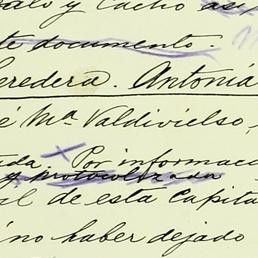 alo y Cacho así
te documento.
eredera. Antonia
é Mª Valdivielso,
ada. Por informac
y protocolizada
il de esta Capita
ó no haber dejado